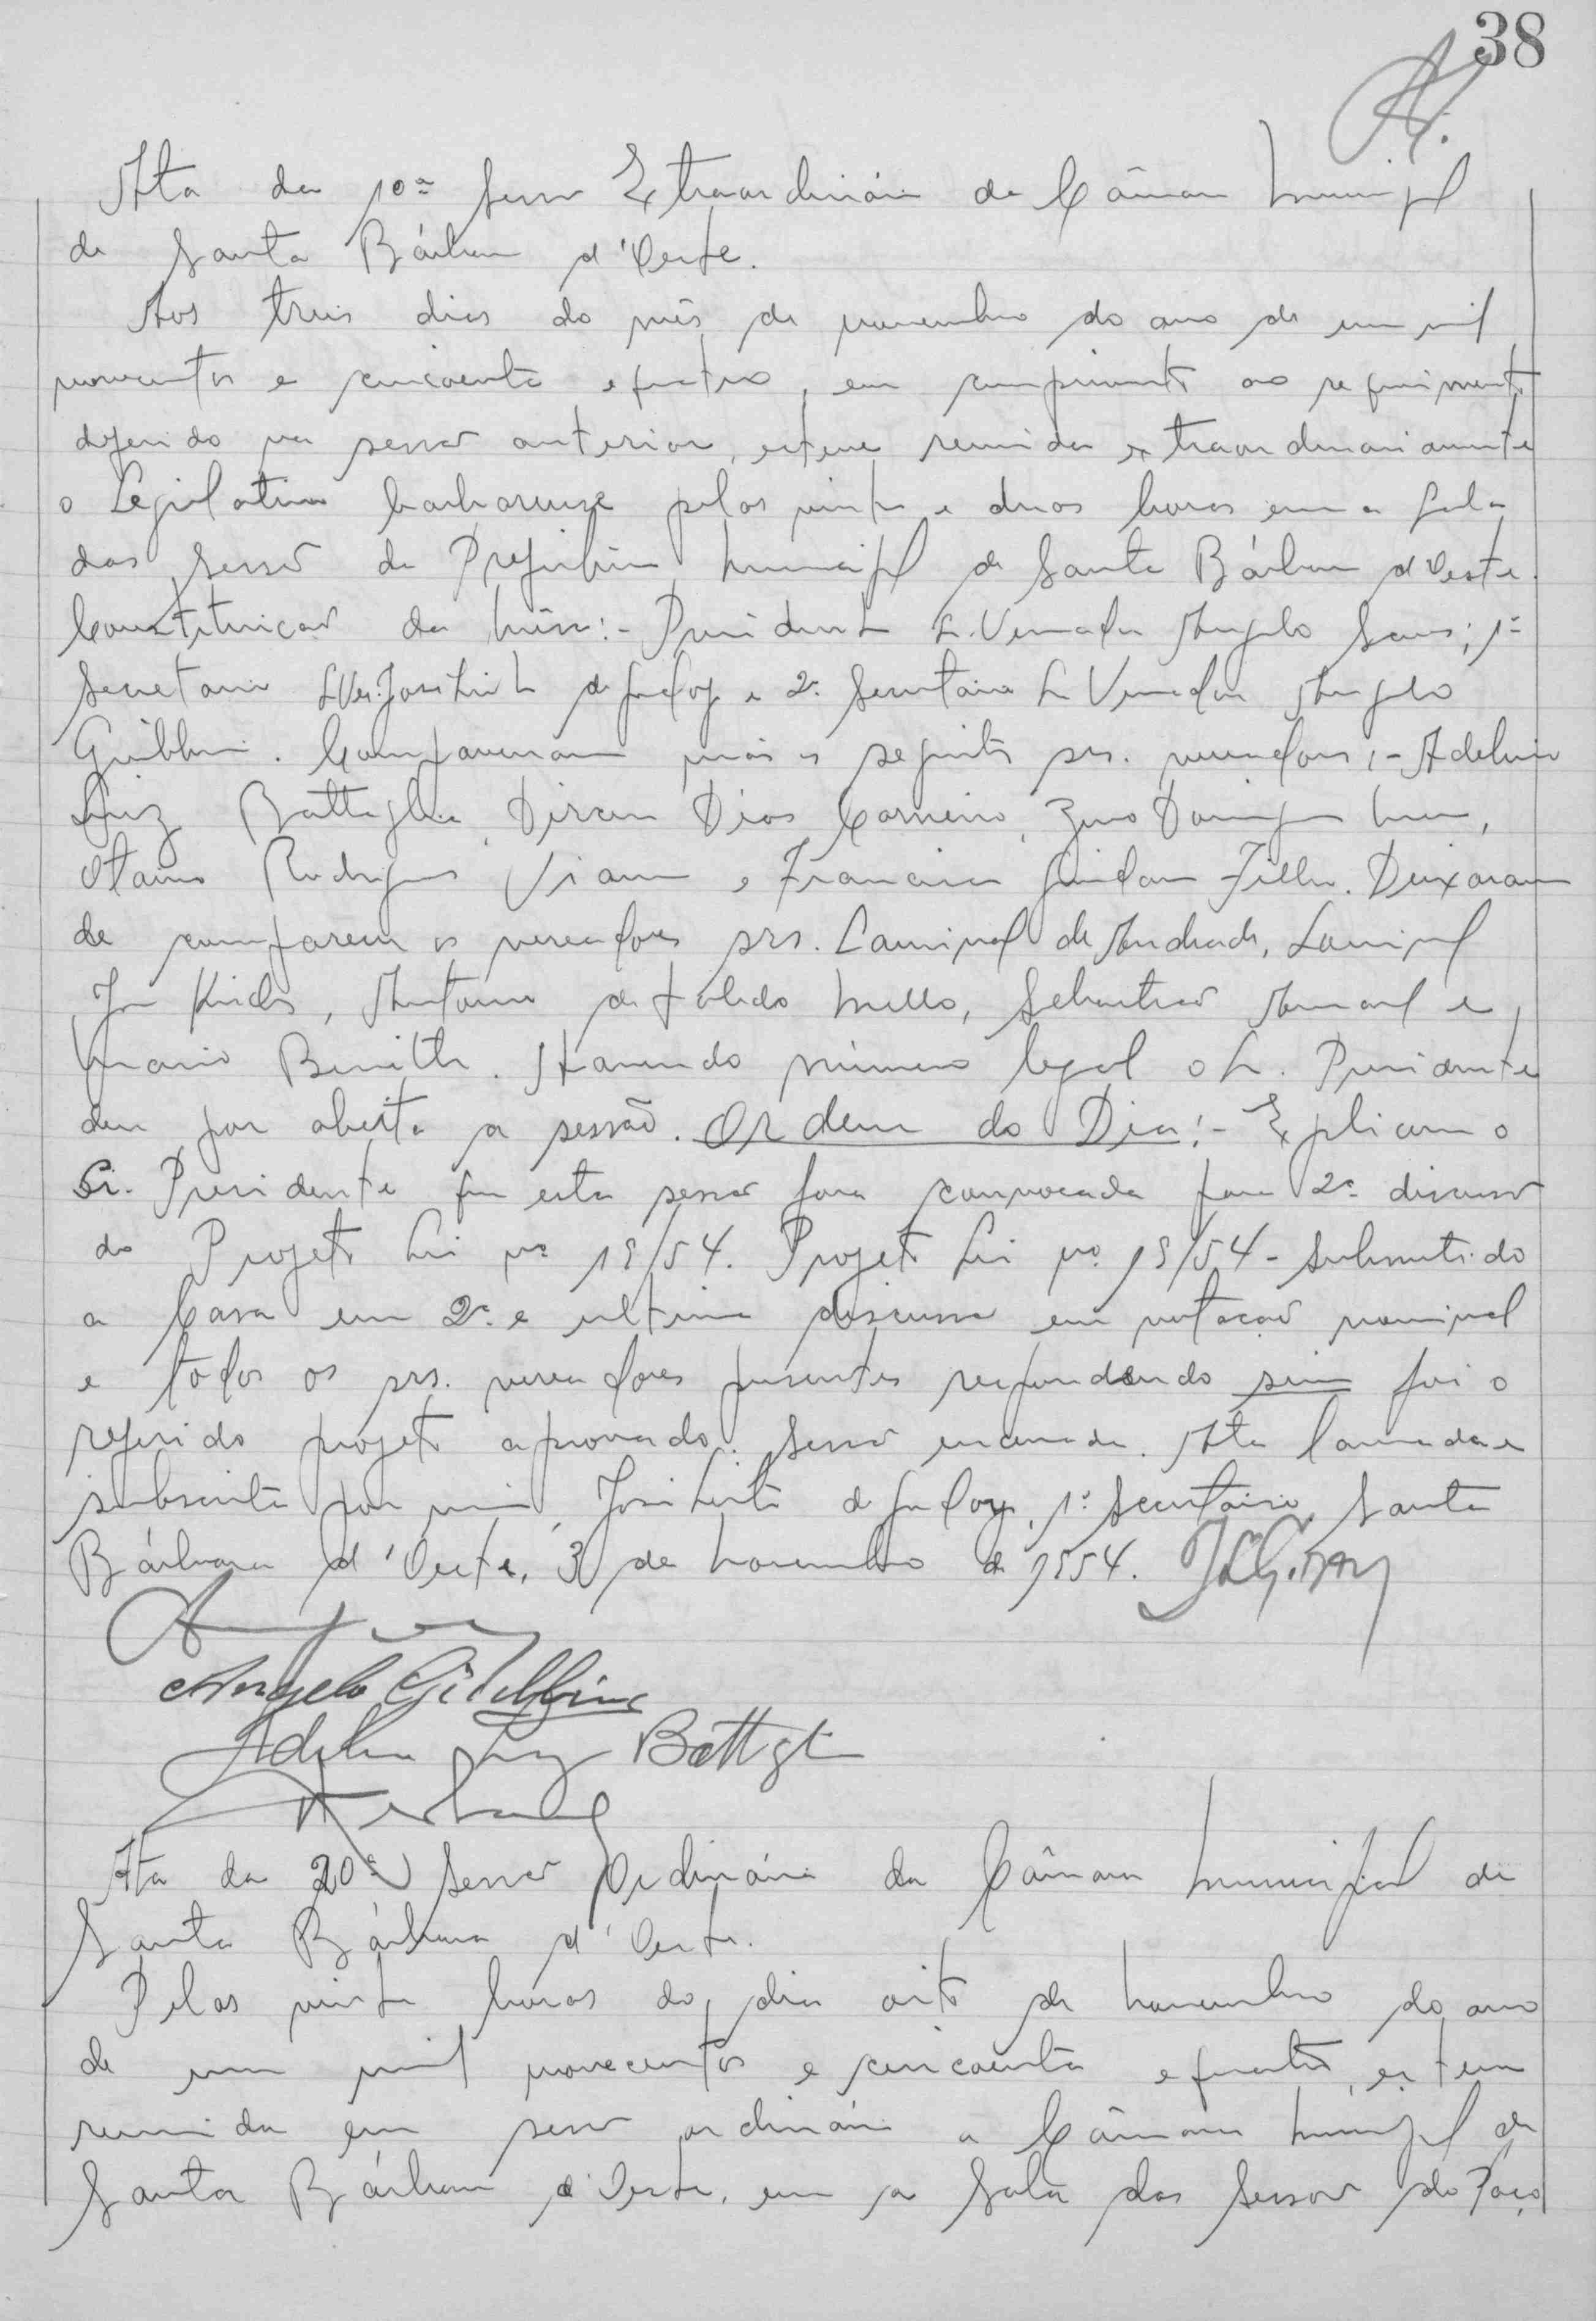 38
Ata da 10ª Sessão Extraordinária da Câmara Municipal
de Santa Bárbara d'Oeste.
Aos treis dias do mês de novembro do ano de um mil
novecentos e cincoenta e quatro, em cumprimento ao requerimento
deferido na sessão anterior, esteve reunida extraordinariamente
o Legislativo barbarense pelas vinte e duas horas em a Sala
das Sessões da Prefeitura Municipal de Santa Bárbara d'Oeste.
Constituição da Mesa:- Presidente Sr. Vereador Angelo Sans; 1º
Secretario Sr. Ver. José Leite de Godoy e 2º Secretário Sr. Vereador Angelo
Giubbina. Compareceram mais os seguintes srs. vereadores:- Adelino
Luiz Battaglia, Dirceu Dias Carneiro, Zeno Domingos Maia,
Otavio Rodrigues Viana e Francisco Filho. Deixaram
de comparecer os vereadores srs. Laurival de Andrade, Laurival
, Antonio de Toledo Mello, Sebastião Amaral e
Mario. Havendo número legal o Sr. Presidente
deu por aberta a sessão. Ordem do Dia:- Explicou o
Sr. Presidente que esta sessão fora convocada para 2ª discussão
do Projeto Lei nº 19/54. Projeto Lei nº 19/54 - Submetido
a Casa em 2ª e ultima discussão em votação nominal
e todos os srs. vereadores presentes respondendo sim foi o
referido projeto aprovado. Sessão encerrada. Ata lavrada e
subscrita por mim, José Leite de Godoy, 1º Secretário. Santa
Bárbara d'Oeste, 3 de Novembro de 1954. JLGodoy
Angelo Giubbina
Adelino Luiz Battaglia
Ata da 20ª Sessão Ordinária da Câmara Municipal de
Santa Bárbara d'Oeste.
Pelas vinte horas do dia oito de Novembro do ano
de um mil novecentos e cincoenta e quatro, esteve
reunida em sessão ordinária a Câmara Municipal de
Santa Bárbara d'Oeste, em a Sala das Sessões do Paço